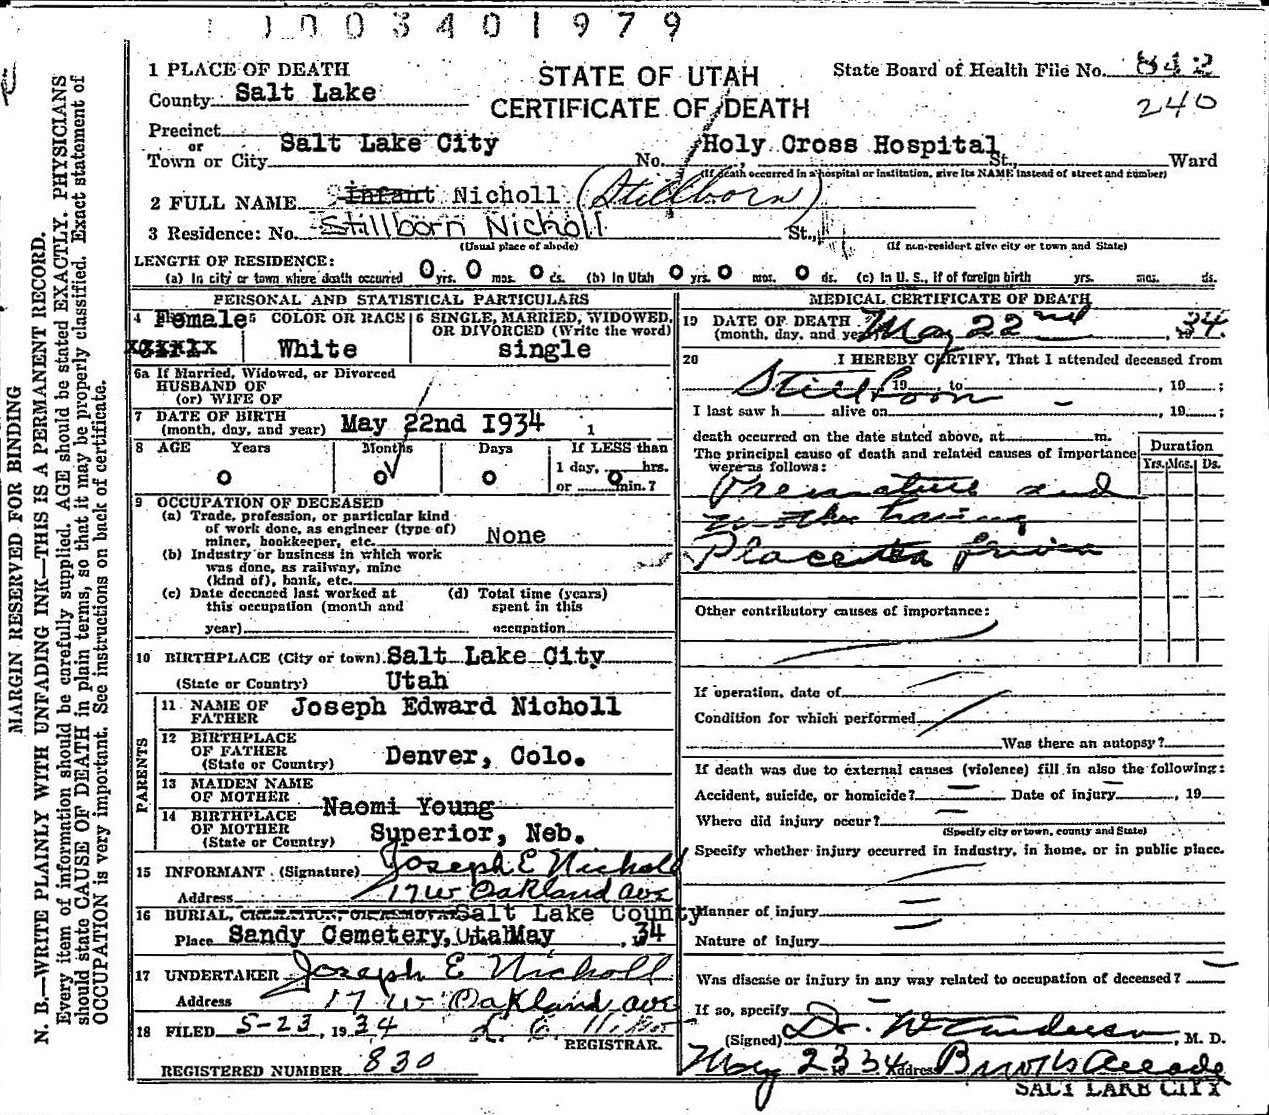 1003401979
1 PLACE OF DEATH
STATE OF UTAH
State Board of Health File No. 842
County Salt Lake
CERTIFICATE OF DEATH
240
Precinct
or
Town or City Salt Lake City No. Holy Cross Hospital St., Ward
(If death occurred in a hospital or institution, give its NAME instead of street and number)
2 FULL NAME Infant Nicholl (Stillborn)
3 Residence: No. Stillborn Nicholl St.,
(Usual place of abode) (If non-resident give city or town and State)
LENGTH OF RESIDENCE:
(a) In city or town where death occurred 0 yrs. 0 mos. 0 ds. (b) In Utah 0 yrs. 0 mos. 0 ds. (c) In U. S., if of foreign birth yrs. mos. ds.
PERSONAL AND STATISTICAL PARTICULARS
4 Female 5 COLOR OR RACE 6 SINGLE, MARRIED, WIDOWED, OR DIVORCED (Write the word)
White single
6a If Married, Widowed, or Divorced
HUSBAND OF
(or) WIFE OF
7 DATE OF BIRTH
(month, day, and year) May 22nd 1934
8 AGE Years Months Days If LESS than
1 day, 0 hrs.
0 0 0
or min.?
9 OCCUPATION OF DECEASED
(a) Trade, profession, or particular kind
of work done, as engineer (type of)
miner, bookkeeper, etc. None
(b) Industry or business in which work
was done, as railway, mine
(kind of), bank, etc.
(c) Date deceased last worked at
this occupation (month and
year)
(d) Total time (years)
spent in this
occupation
10 BIRTHPLACE (City or town) Salt Lake City
(State or Country) Utah
PARENTS
11 NAME OF
FATHER Joseph Edward Nicholl
12 BIRTHPLACE
OF FATHER
(State or Country) Denver, Colo.
13 MAIDEN NAME
OF MOTHER Naomi Young
14 BIRTHPLACE
OF MOTHER
(State or Country) Superior, Neb.
15 INFORMANT (Signature) Joseph E Nicholl
Address 17 W Oakland Ave
16 BURIAL, CREMATION, OR REMOVAL Salt Lake County
Place Sandy Cemetery, Utah May , 34
17 UNDERTAKER Joseph E Nicholl
Address 17 W Oakland Ave
18 FILED 5-23, 1934
REGISTRAR.
REGISTERED NUMBER 830
MEDICAL CERTIFICATE OF DEATH
19 DATE OF DEATH
(month, day, and year) May 22nd , 34
20 I HEREBY CERTIFY, That I attended deceased from
Stillborn 19 , to , 19 ;
I last saw h alive on , 19 ;
death occurred on the date stated above, at m.
The principal cause of death and related causes of importance
were as follows:
Duration
Yrs. Mos. Ds.
Premature and
mother having
Placenta Previa
Other contributory causes of importance:
If operation, date of
Condition for which performed
Was there an autopsy?
If death was due to external causes (violence) fill in also the following:
Accident, suicide, or homicide? Date of injury , 19
Where did injury occur?
(Specify city or town, county and State)
Specify whether injury occurred in industry, in home, or in public place.
Manner of injury
Nature of injury
Was disease or injury in any way related to occupation of deceased?
If so, specify
(Signed) Dr. W T Anderson , M. D.
May 23 34 Address Brooks Arcade
SALT LAKE CITY
MARGIN RESERVED FOR BINDING
N. B.—WRITE PLAINLY WITH UNFADING INK—THIS IS A PERMANENT RECORD.
Every item of information should be carefully supplied. AGE should be stated EXACTLY. PHYSICIANS
should state CAUSE OF DEATH in plain terms, so that it may be properly classified. Exact statement of
OCCUPATION is very important. See instructions on back of certificate.